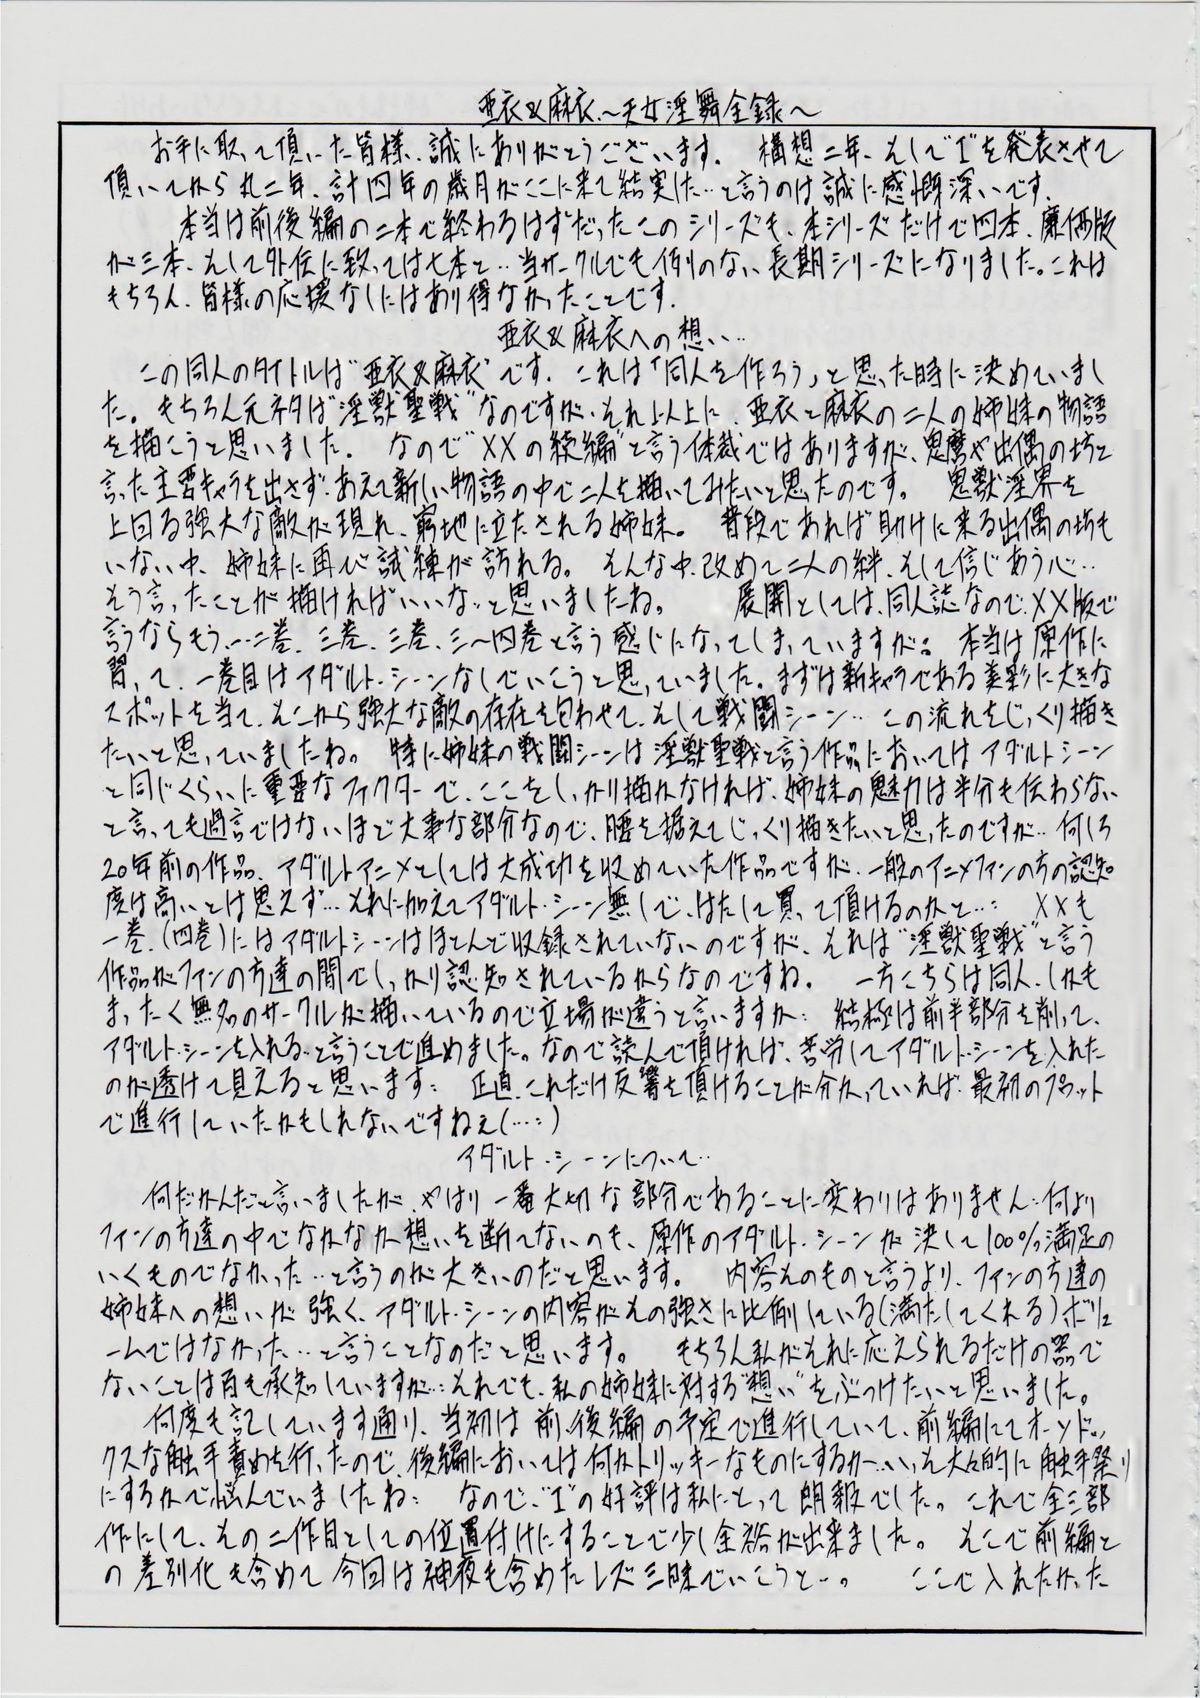 亜衣&麻衣～天女淫舞全録～
お手に取って頂いた皆様、誠にありがとうございます。 構想二年、そして"I"を発表させて
頂いてから丸二年、計四年の歳月がここに来て結実した…と言うのは誠に感慨深いです。
本当は前後編の二本で終わるはずだったこのシリーズも、本シリーズだけで四本、廉価版
が三本、そして外伝に至っては七本と…当サークルでも例のない長期シリーズになりました。これは
もちろん、皆様の応援なしにはあり得なかったことです。
亜衣&麻衣への想い…
この同人のタイトルは"亜衣&麻衣"です。これは「同人を作ろう」と思った時に決めていまし
た。もちろん元ネタは"淫獣聖戦"なのですが、それ以上に、亜衣と麻衣の二人の姉妹の物語
を描こうと思いました。 なので"XXの続編"と言う体裁ではありますが、鬼麿や出偶の坊と
言った主要キャラを出さず、あえて新しい物語の中で二人を描いてみたいと思ったのです。 鬼獣淫界を
上回る強大な敵が現れ、窮地に立たされる姉妹。 普段であれば助けに来る出偶の坊も
いない中、姉妹に再び試練が訪れる。 そんな中、改めて二人の絆、そして信じあう心…
そう言ったことが描ければいいな…と思いましたね。 展開としては、同人誌なので、XX版で
言うならもう…二巻、三巻、三巻、三～四巻と言う感じになってしまっていますが。 本当は原作に
習って、一巻目はアダルト・シーンなしでいこうと思っていました。まずは新キャラである美彩に大きな
スポットを当て、そこから強大な敵の存在を匂わせて、そして戦闘シーン…この流れをじっくり描き
たいと思っていましたね。 特に姉妹の戦闘シーンは淫獣聖戦と言う作品においてはアダルトシーン
と同じくらいに重要なファクターで、ここをしっかり描かなければ、姉妹の魅力は半分も伝わらない
と言っても過言ではないほど大事な部分なので、腰を据えてじっくり描きたいと思ったのですが…何しろ
20年前の作品、アダルトアニメとしては大成功を収めていた作品ですが、一般のアニメファンの方の認知
度は高いとは思えず…それに加えてアダルト・シーン無しで、はたして買って頂けるのかと…: XXも
一巻、(四巻)にはアダルトシーンはほとんど収録されていないのですが、それは"淫獣聖戦"と言う
作品がファンの方達の間でしっかり認知されているからなのですね。 一方こちらは同人、しかも
まったく無名のサークルが描いているので立場が違うと言いますか: 結極は前半部分を削って、
アダルト・シーンを入れる…と言うことで進めました。なので読んで頂ければ、苦労してアダルト・シーンを入れた
のが透けて見えると思います: 正直、これだけ反響を頂けることが分かっていれば、最初のプロット
で進行していたかもしれないですねぇ(…:)
アダルト・シーンについて…
何だかんだと言いましたが、やはり一番大切な部分であることに変わりはありません…何より
ファンの方達の中でなかなか想いを断てないのも、原作のアダルト・シーンが決して100%満足の
いくものでなかった…と言うのが大きいのだと思います。 内容そのものと言うより、ファンの方達の
姉妹への想いが強く、アダルト・シーンの内容がその強さに比例している(満たしてくれる)ボリュ
ームではなかった…と言うことなのだと思います。 もちろん私がそれに応えられるだけの器で
ないことは百も承知していますが…: それでも、私の姉妹に対する"想い"をぶつけたいと思いました。
何度も記しています通り、当初は前、後編の予定で進行していて、前編にてオーソドッ
クスな触手責めを行ったので、後編においては何かトリッキーなものにするか…いっそ大々的に触手祭り
にするかで悩んでいましたね: なので、"I"の好評は私にとって朗報でした。これで全三部
作にして、その二作目としての位置付けにすることで少し余裕が出来ました。 そこで前編と
の差別化も含めて今回は神夜も含めたレズ三昧でいこうと…。 ここで入れたかった